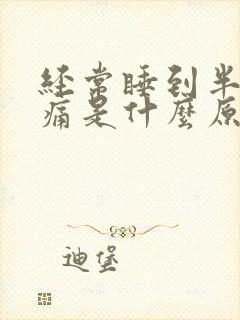 经常睡到半
痛是什麼原
迪堡